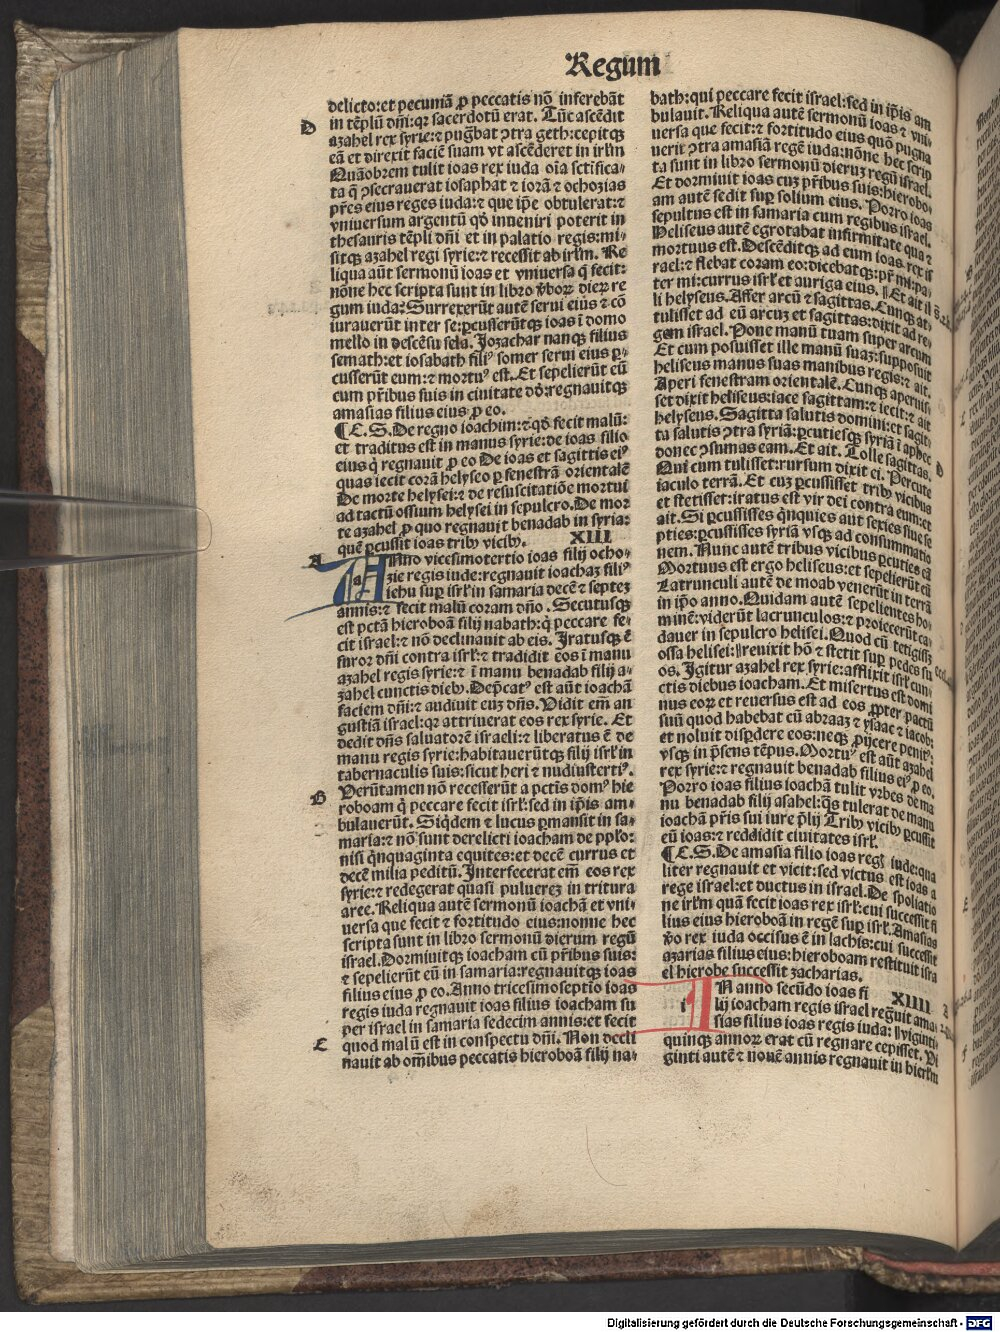 Regum
delicto:et pecuniā ꝓ peccatis nō inferebāt
in tēplū dñi:qꝛ sacerdotū erat. Tūc ascēdit
D
azahel rex syrie:⁊ pug̃bat ꝯtra geth:cepitqꝫ
eā et direxit faciē suam vt ascēderet in irłm
Quāobrem tulit ioas rex iuda oīa sctīfica⸗
ta q̄ ꝯsecrauerat iosaphat ⁊ iorā ⁊ ochozias
pr̄es eius reges iuda:⁊ que ip̄e obtulerat:⁊
vniuersum argentū qd̄ inueniri poterit in
thesauris tēpli dñi et in palatio regis:mi⸗
sitqꝫ azahel regi syrie:⁊ recessit ab irłm. Re
liqua aūt sermonū ioas et vniuersa q̄ fecit:
nōne hec scripta sunt in libro v̄boꝝ dieꝝ re
gum iuda:Surrexerūt autē serui eius ⁊ cō
iurauerūt inter se:ꝑcusserūtqꝫ ioas ī domo
mello in descēsu sela. Jozachar nanqꝫ filius
semath:et iosabath filiꝰ somer serui eius ꝑ⸗
cusserūt eum:⁊ mortuꝰ est. Et sepelierūt eū
cum pr̄ibus suis in ciuitate dd̄:regnauitqꝫ
amasias filius eius ꝓ eo.
¶ C. S. De regno ioachim:⁊ qd̄ fecit malū:
et traditus est in manus syrie:de ioas filio
eius q̄ regnauit ꝓ eo De ioas et sagittis eiꝰ
quas iecit corā helyseo ꝑ fenestrā orientalē
De morte helysei:⁊ de resuscitatiōe mortui
ad tactū ossium helysei in sepulcro. De mor
te azahel ꝓ quo regnauit benadab in syria:
quē ꝑcussit ioas tribꝰ vicibꝰ. XIII
A
ANno vicesimotertio ioas filij ocho⸗
zie regis iude:regnauit ioachaz filiꝰ
iehu suꝑ isrł in samaria decē ⁊ septeꝫ
annis:⁊ fecit malū coram dño. Secutusqꝫ
est pctā hieroboā filij nabath:q̄ peccare fe⸗
cit israel:⁊ nō declinauit ab eis. Jratusqꝫ ē
furor dñi contra isrł:⁊ tradidit eos ī manu
azahel regis syrie:⁊ ī manu benadab filij a⸗
zahel cunctis diebꝰ. Dep̄catꝰ est aūt ioachā
faciem dñi:⁊ audiuit euꝫ dñs. Vidit em̄ an
gustiā israel:qꝛ attriuerat eos rex syrie. Et
dedit dñs saluatorē israeli:⁊ liberatus ē de
manu regis syrie:habitauerūtqꝫ filij isrł in
tabernaculis suis:sicut heri ⁊ nudiustertiꝰ.
B
Verūtamen nō recesserūt a pctis domꝰ hie
roboam q̄ peccare fecit isrł:sed in ip̄is am⸗
bulauerūt. Siq̄dem ⁊ lucus ꝑmansit in sa⸗
maria:⁊ nō sunt derelicti ioacham de ppło:
nisi q̄nquaginta equites:et decē currus et
decē milia peditū. Jnterfecerat em̄ eos rex
syrie:⁊ redegerat quasi puluereꝫ in tritura
aree. Reliqua autē sermonū ioachā et vni⸗
uersa que fecit ⁊ fortitudo eius:nonne hec
scripta sunt in libro sermonū dierum regū
israel. Dormiuitqꝫ ioacham cū pr̄ibus suis:
⁊ sepelierūt eū in samaria:regnauitqꝫ ioas
filius eius ꝓ eo. Anno tricesimoseptīo ioas
regis iuda regnauit ioas filius ioacham su
per israel in samaria sedecim annis:et fecit
C
quod malū est in conspectu dñi. Non decli
nauit ab om̄ibus peccatis hieroboā filij na⸗
bath:qui peccare fecit israel:sed in ip̄is am
bulauit. Reliqua autē sermonū ioas ⁊ vni⸗
uersa que fecit:⁊ fortitudo eius quō pugna
uerit ꝯtra amasiā regē iuda:nōne hec scrip
ta sunt in libro sermonū dieruꝫ regū israel.
Et dormiuit ioas cuꝫ pr̄ibus suis:hierobo⸗
am autē sedit suꝑ solium eius. Porro ioas
sepultus est in samaria cum regibus israel.
Heliseus autē egrotabat infirmitate qua ⁊
mortuus est. Descēditqꝫ ad eum ioas rex is
rael:⁊ flebat coram eo:dicebatqꝫ:pr̄ mi:pa⸗
ter mi:currus isrł et auriga eius. Et ait il
li helyseus. Affer arcū ⁊ sagittas. Cunqꝫ at⸗
tulisset ad eū arcuꝫ et sagittas:dixit ad re⸗
gem israel. Pone manū tuam super arcum
Et cum posuisset ille manū suaꝫ:supposuit
heliseus manus suas manibus regis:⁊ ait.
Aperi fenestram orientalē. Cunqꝫ aperuis⸗
set dixit heliseus:iace sagittam:⁊ iecit:⁊ ait
helyseus. Sagitta salutis domini:et sagit⸗
ta salutis ꝯtra syriā:ꝑcutiesqꝫ syriā ī aphec
donec ꝯsumas eam. Et ait. Tolle sagittas.
D
Qui cum tulisset:rursum dixit ei. Percute
iaculo terrā. Et cuꝫ ꝑcussisset tribꝰ vicibus
et stetisset:iratus est vir dei contra eum:et
ait. Si ꝑcussisses q̄nquies aut sexies siue se
pties:ꝑcussisses syriā vsqꝫ ad consummatio
nem. Nunc autē tribus vicibus ꝑcuties eā
Mortuus est ergo heliseus:et sepelierūt eū
Latrunculi autē de moab venerūt in terrā
in ip̄o anno. Quidam autē sepelientes ho⸗
minē:viderūt latrunculos:⁊ proiecerūt ca⸗
dauer in sepulcro helisei. Quod cū tetigissꝫ
ossa helisei:reuixit hō ⁊ stetit suꝑ pedes su
os. Jgitur azahel rex syrie:afflixit isrł cun⸗
ctis diebus ioacham. Et misertus est domi
nus eoꝝ et reuersus est ad eos ꝓpter pactū
suū quod habebat cū abraaꝫ ⁊ ysaac ⁊ iacob:
et noluit disꝑdere eos:neqꝫ ꝓijcere penitꝰ:
vsqꝫ in p̄sens tēpus. Mortuꝰ est aūt azahel
rex syrie:⁊ regnauit benadab filius eiꝰ ꝓ eo.
Porro ioas filius ioachā tulit vrbes de ma
nu benadab filij asahel:q̄s tulerat de manu
ioachā pr̄is sui iure p̄lij Tribꝰ vicibꝰ ꝑcussit
eū ioas:⁊ reddidit ciuitates isrł.
¶ C. S. De amasia filio ioas regꝭ iude:qua
liter regnauit et vicit:sed victus est ioas a
rege israel:et ductus in israel. De spoliatio
ne irłm quā fecit ioas rex isrł:cui successit fi
lius eius hieroboā in regē suꝑ isrł. Amasias
v̄o rex iuda occisus ē in lachis:cui successit
azarias filius eius:hieroboam restituit isra
el hierobe successit zacharias.
XIIII
JN anno secūdo ioas fi
lij ioacham regis israel reg̃uit ama⸗
sias filius ioas regis iuda:viginti⸗
quinqꝫ annoꝝ erat cū regnare cepisset. Vi
ginti autē ⁊ nouē annis regnauit in hierłm
Digitalisierung gefördert durch die Deutsche Forschungsgemeinschaft - DFG